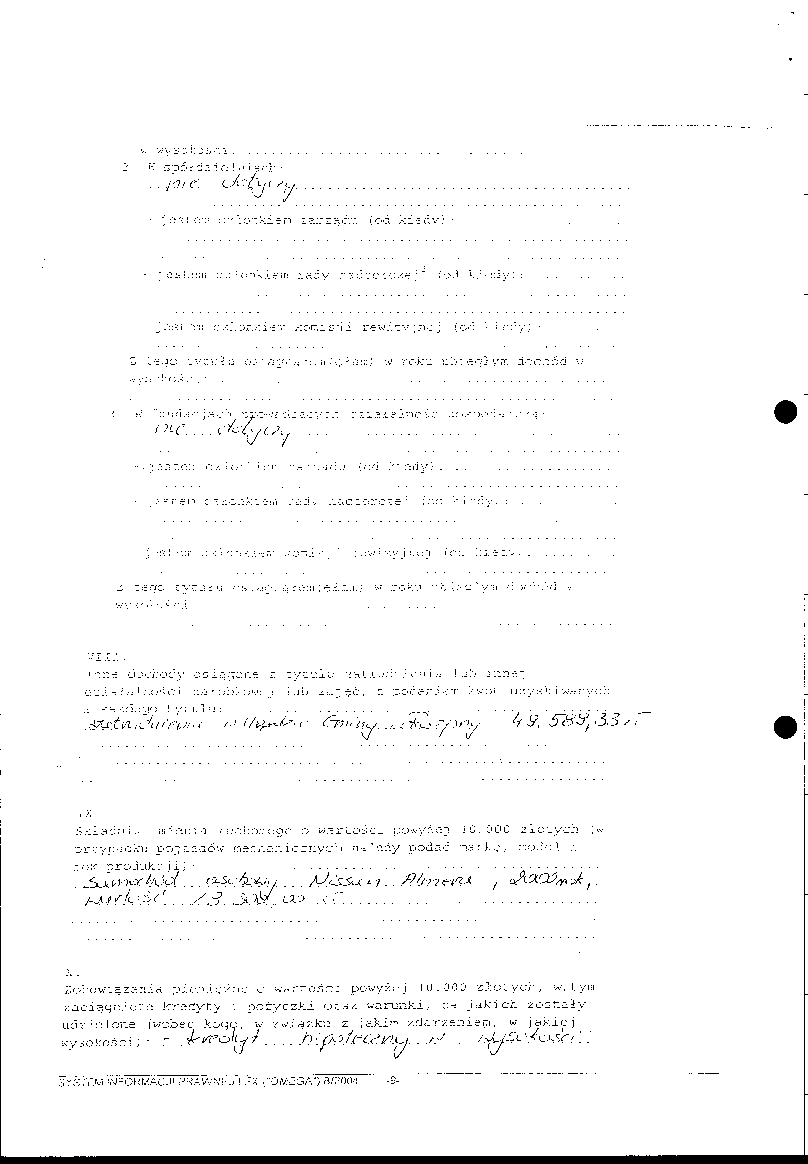 w wysokości
W spółdzielniach:
nie dotyczy
- jestem członkiem zarządu (od kiedy):
- jestem członkiem rady nadzorczej³ (od kiedy):
jestem członkiem komisji rewizyjnej (od kiedy):
Z tego tytułu osiągnąłem(ęłam) w roku ubiegłym dochód w
wysokości:
W fundacjach prowadzących działalność gospodarczą:
nie dotyczy
- jestem członkiem zarządu (od kiedy):
- jestem członkiem rady nadzorczej (od kiedy):
jestem członkiem komisji rewizyjnej (od kiedy):
Z tego tytułu osiągnąłem(ęłam) w roku ubiegłym dochód w
wysokości
VIII.
Inne dochody osiągane z tytułu zatrudnienia lub innej
działalności zarobkowej lub zajęć, z podaniem kwot uzyskiwanych
z każdego tytułu:
zatrudnienie w Urzędzie Gminy 49.589,33
IX
Składniki mienia ruchomego o wartości powyżej 10.000 złotych (w
przypadku pojazdów mechanicznych należy podać markę, model i
rok produkcji):
Samochód osobowy Nissan Almera, 2000
wartość 13
X.
Zobowiązania pieniężne o wartości powyżej 10.000 złotych, w tym
zaciągnięte kredyty i pożyczki oraz warunki, na jakich zostały
udzielone (wobec kogo, w związku z jakim zdarzeniem, w jakiej
wysokości): - kredyt hipoteczny w wysokości
SYSTEM INFORMACJI PRAWNEJ LEX (OMEGA) 8/2004 -9-